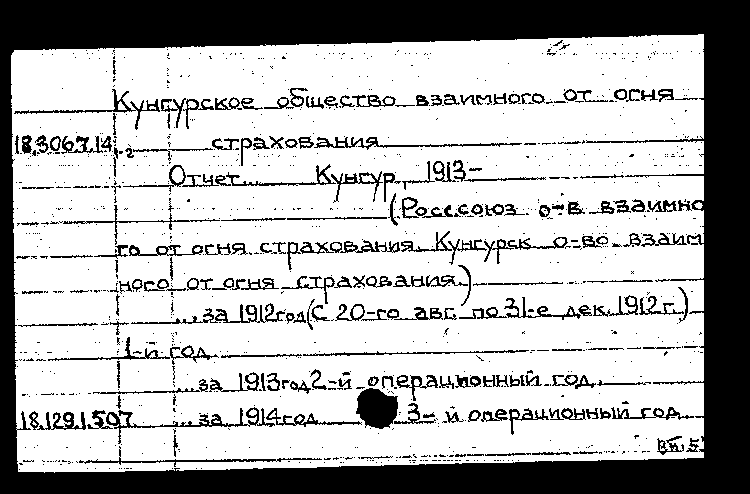 Кунгурское общество взаимного от огня
18.306.7.14 1-2 страхования
Отчет... Кунгур, 1913-
(Росс.союз о-в взаимно
го от огня страхования. Кунгурск о-во взаим
ного от огня страхования.)
...за 1912год(С 20-го авг. по 31-е дек. 1912 г.)
1-й год
...за 1913год 2-й операционный год.
18.129.1.507 ...за 1914год 3-й операционный год.